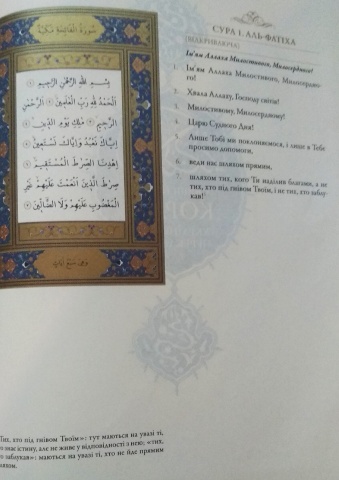 سُورَةُ الْفَاتِحَةِ مَكِّيَّة
بِسْمِ اللَّهِ الرَّحْمَٰنِ الرَّحِيمِ
الْحَمْدُ لِلَّهِ رَبِّ الْعَالَمِينَ الرَّحْمَٰنِ
الرَّحِيمِ مَلِكِ يَوْمِ الدِّينِ
إِيَّاكَ نَعْبُدُ وَإِيَّاكَ نَسْتَعِينُ
اهْدِنَا الصِّرَاطَ الْمُسْتَقِيمَ
صِرَاطَ الَّذِينَ أَنْعَمْتَ عَلَيْهِمْ غَيْرِ
الْمَغْضُوبِ عَلَيْهِمْ وَلَا الضَّالِّينَ
СУРА 1. АЛЬ-ФАТІХА
[ВІДКРИВАЮЧА]
Ім'ям Аллаха Милостивого, Милосердного!
1. Ім'ям Аллаха Милостивого, Милосердно-
го!
2. Хвала Аллаху, Господу світів!
3. Милостивому, Милосердному!
4. Царю Судного Дня!
5. Лише Тобі ми поклоняємося, і лише в Тебе
просимо допомоги.
6. веди нас шляхом прямим,
7. шляхом тих, кого Ти наділив благами, а не
тих, хто під гнівом Твоїм, і не тих, хто заблу-
кав!
Тих, хто під гнівом Твоїм»: тут маються на увазі ті,
о знає істину, але не живе у відповідності з нею; «тих,
о заблукав»: маються на увазі ті, хто не йде прямим
ляхом.